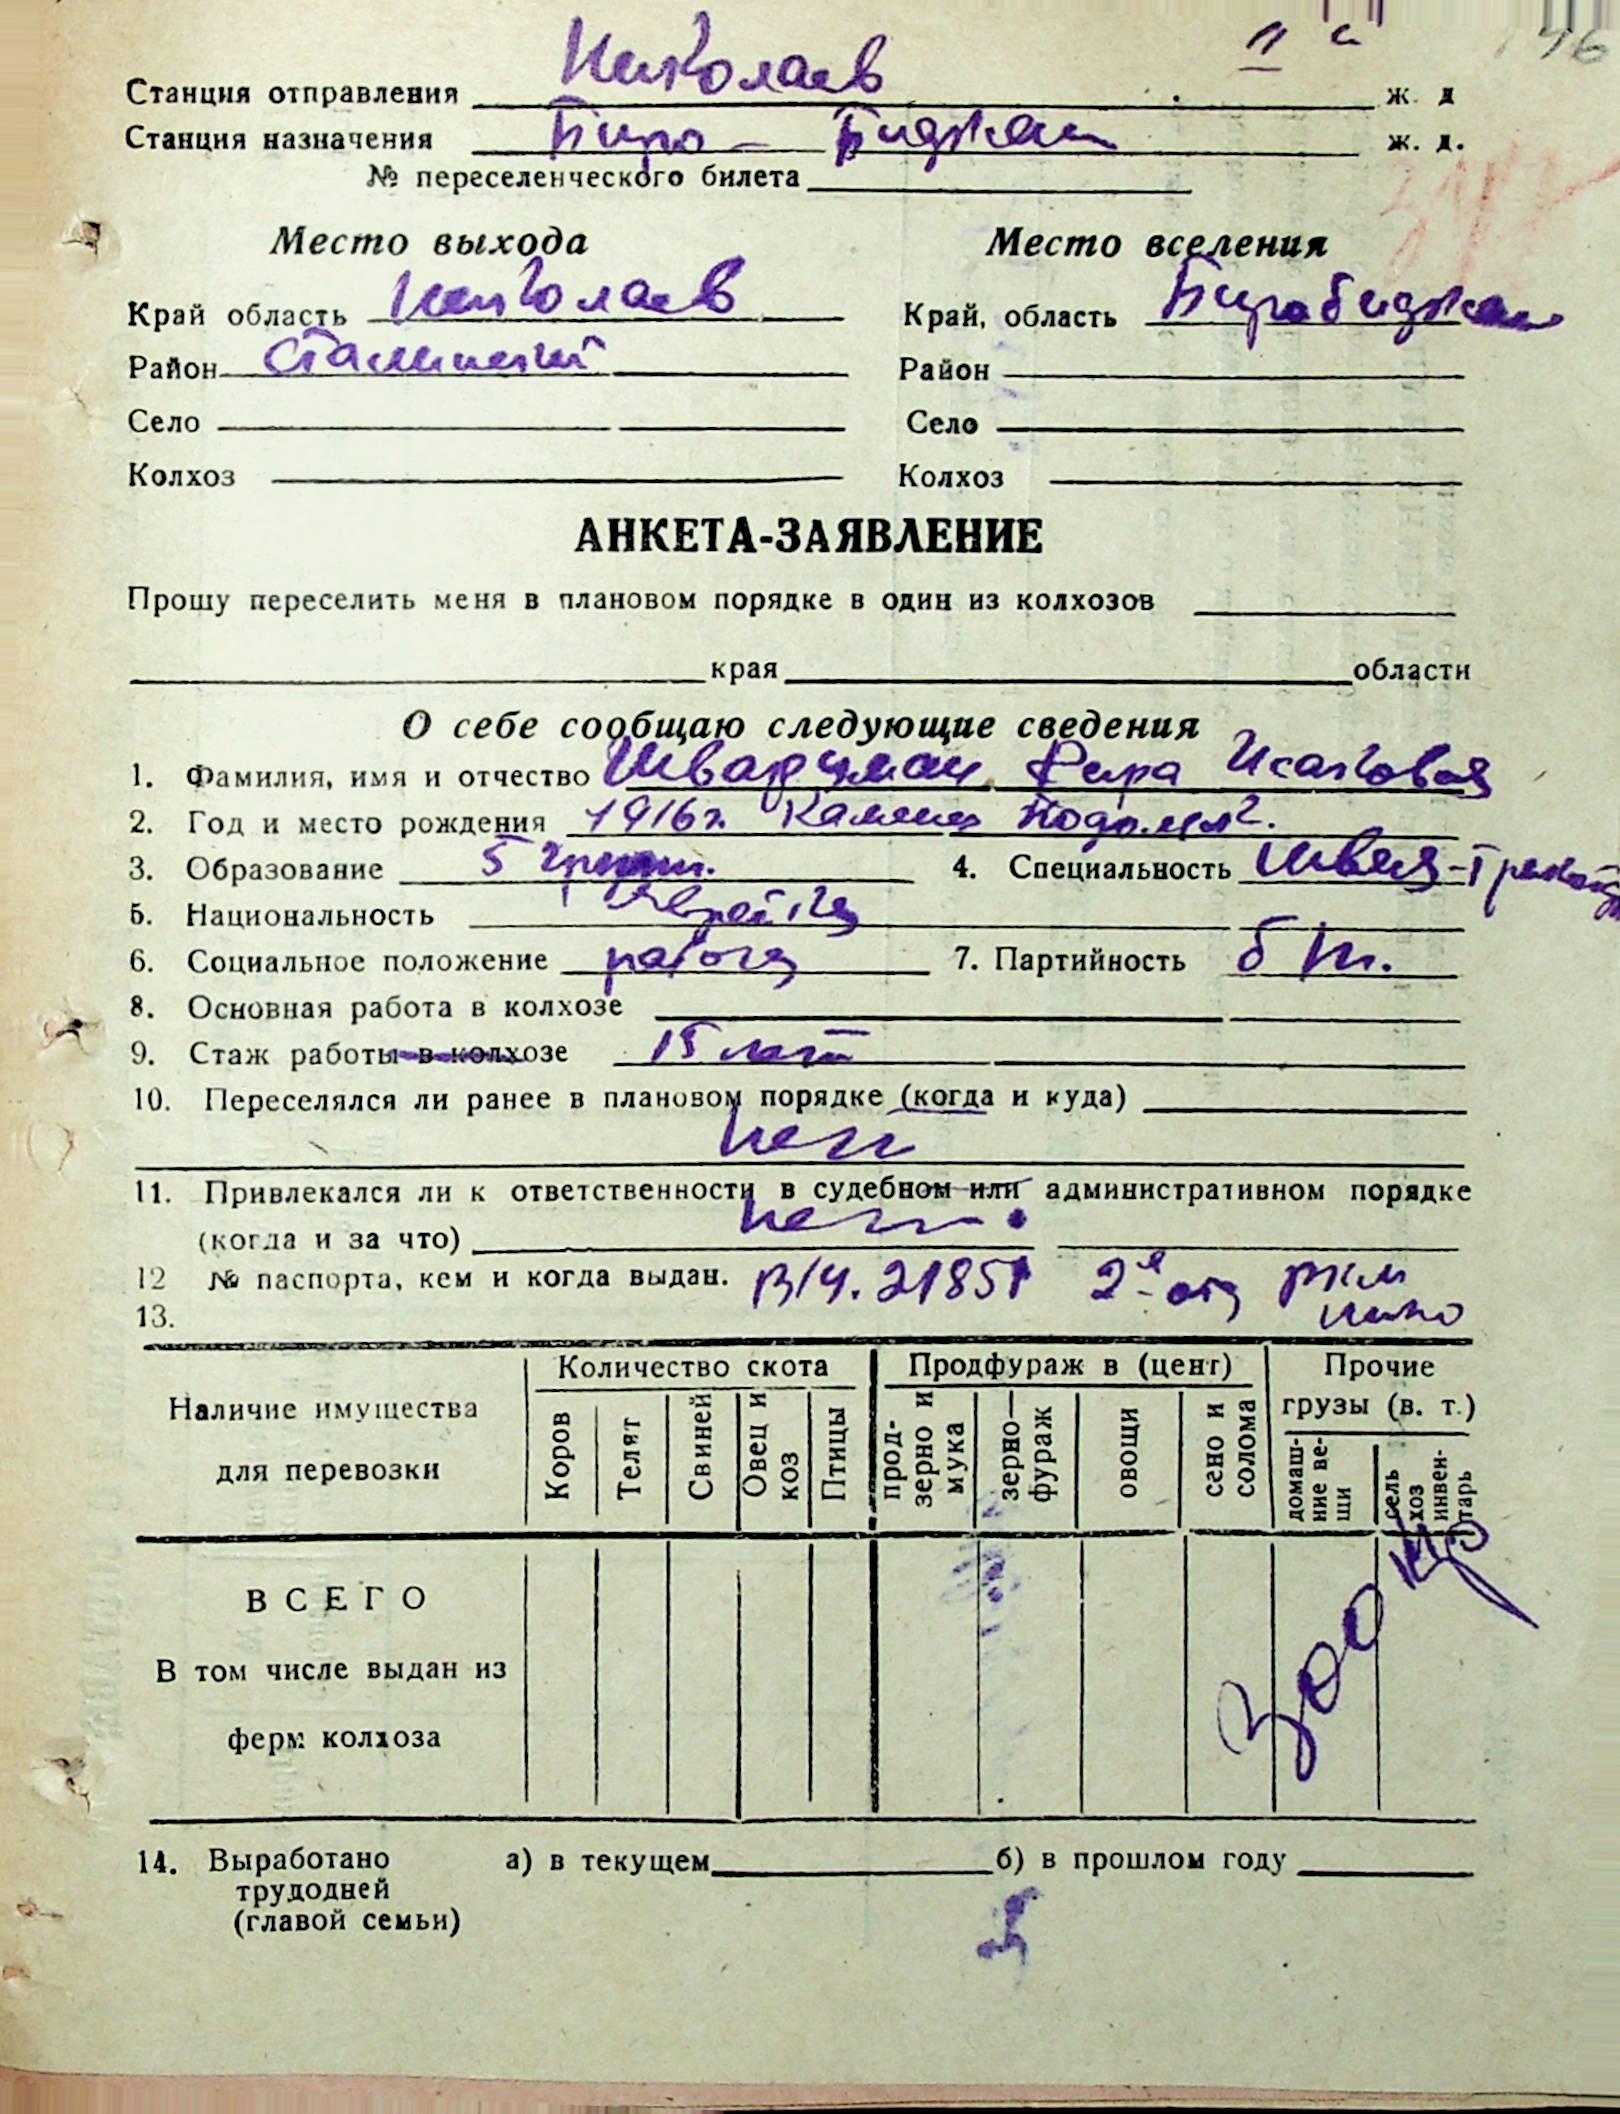 46
Станция отправления Николаев ж. д
Станция назначения Биро - Биджан ж. д.
№ переселенческого билета
Место выхода
Место вселения
Край область Николаев
Край, область Биробиджан
Район Сталинский
Район
Село
Село
Колхоз
Колхоз
АНКЕТА-ЗАЯВЛЕНИЕ
Прошу переселить меня в плановом порядке в один из колхозов
края области
О себе сообщаю следующие сведения
1. Фамилия, имя и отчество Шварцман Фира Исаковая
2. Год и место рождения 1916 г. Каменец Подольск.
3. Образование 5 групп. 4. Специальность Швея-
5. Национальность Еврейка
6. Социальное положение рабочая 7. Партийность б/п.
8. Основная работа в колхозе
9. Стаж работы в колхозе 15 лет
10. Переселялся ли ранее в плановом порядке (когда и куда)
нет
11. Привлекался ли к ответственности в судебном или административном порядке
(когда и за что) нет.
12 № паспорта, кем и когда выдан. 21851 2-я РКМ
13.
Наличие имущества для перевозки
Количество скота
Продфураж в (цент)
Прочие грузы (в. т.)
Коров
Телят
Свиней
Овец и коз
Птицы
прод-зерно и мука
зерно—фураж
овощи
сено и солома
домаш-ние ве-щи
сель хоз инвен-тарь
ВСЕГО
300 кгр
В том числе выдан из
ферм колхоза
14. Выработано а) в текущем б) в прошлом году
трудодней
(главой семьи)